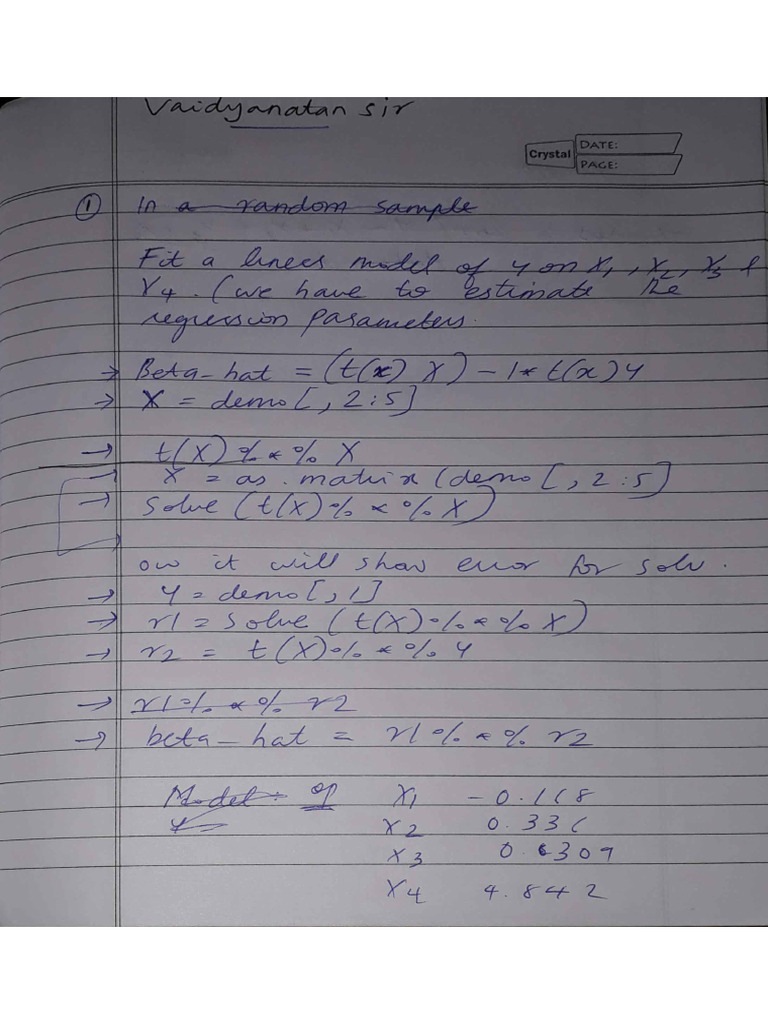 Vaidyanatan sir
Crystal DATE:
PAGE:
① In a random sample
Fit a linear model of y on X1, X2, X3 &
X4. (we have to estimate the
regression parameters.
→ Beta-hat = (t(x) X) - 1* t(x) y
→ X = demo[, 2:5]
→ t(X) %*% X
→ X = as.matrix (demo [, 2:5]
→ Solve (t(X) %*% X)
ow it will show error for solv.
→ y = demo[, 1]
→ r1 = solve (t(X) %*% X)
→ r2 = t(X) %*% y
→ r1 %*% r2
→ beta-hat = r1 %*% r2
Model: of X1 -0.118
y X2 0.331
X3 0.6309
X4 4.842